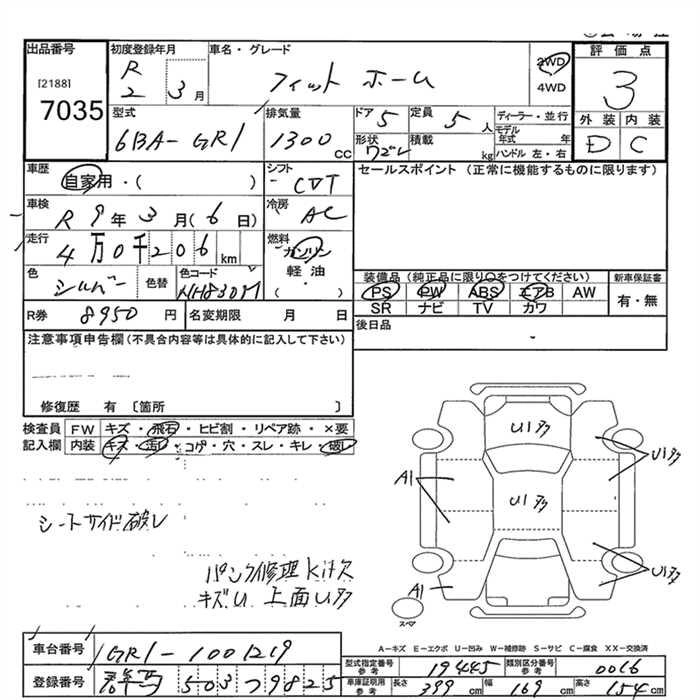 出品番号
[2188]
7035
初度登録年月
R 2 3月
車名・グレード
フィット ホーム
2WD
4WD
評価点
3
外装 内装
D C
型式
6BA-GR1
排気量
1300 CC
ドア 5
定員 5人
形状 ワゴン
積載 kg
ディーラー・並行
モデル年式 年
ハンドル 左・右
車歴
自家用・( )
シフト
CVT
セールスポイント (正常に機能するものに限ります)
車検
R 9年3月(6日)
冷房
AC
走行
4万0千206km
燃料
ガソリン
軽油
( )
色
シルバー
色替
色コード
NH830M
装備品(純正品に限り○をつけてください)
PS PW ABS エアB AW
SR ナビ TV カワ
新車保証書
有・無
R券 8950円
名変期限 月 日
後日品
注意事項申告欄(不具合内容等は具体的に記入して下さい)
修復歴 有 〔箇所 〕
検査員 FW キズ・飛石・ヒビ割・リペア跡・×要
記入欄 内装 キズ・汚レ・コゲ・穴・スレ・キレ・破レ
シートサイド破レ
パンク修理kit欠
キズU 上面U1多
U1多
U1多
U1多
U1多
A1
A1
スペア
A-キズ E-エクボ U-凹み W-補修跡 S-サビ C-腐食 XX-交換済
車台番号 GR1-1001219
登録番号 群馬503つ9825
型式指定番号 参考 19445
類別区分番号 参考 0016
車庫証明用 参考 長さ 399cm 幅 169cm 高さ 154cm